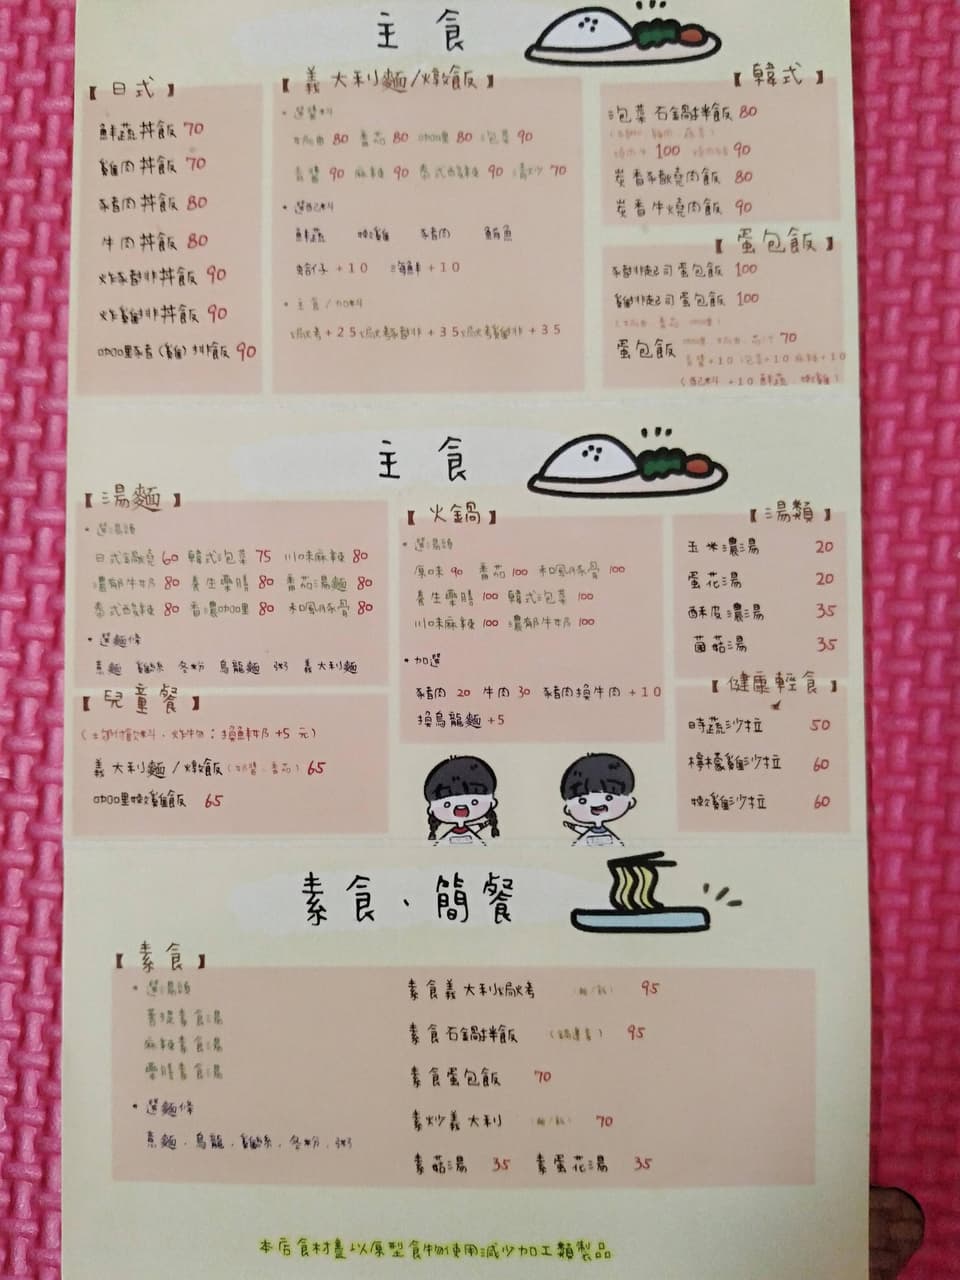 主食
【日式】
鮮蔬丼飯 70
雞肉丼飯 70
豬肉丼飯 80
牛肉丼飯 80
炸豬排丼飯 90
炸雞排丼飯 90
咖哩豬（雞）排飯 90
【義大利麵/燉飯】
• 選醬料
奶油 80 番茄 80 咖哩 80 泡菜 90
青醬 90 麻辣 90 泰式酸辣 90 清炒 70
• 選配料
鮮蔬 嫩雞 豬肉 鮪魚
蛤仔+10 海鮮+10
• 主食/加料
焗烤+25 焗烤豬排+35 焗烤雞排+35
【韓式】
泡菜石鍋拌飯 80
100 90
炭香豬燒肉飯 80
炭香牛燒肉飯 90
【蛋包飯】
豬排起司蛋包飯 100
雞排起司蛋包飯 100
（奶油．番茄．咖哩）
蛋包飯 70
青醬+10 泡菜+10 麻辣+10
（配料+10 鮮蔬．嫩雞）
主食
【湯麵】
• 選湯頭
日式鍋燒 60 韓式泡菜 75 川味麻辣 80
濃郁牛奶 80 養生藥膳 80 番茄湯麵 80
泰式酸辣 80 香濃咖哩 80 和風豚骨 80
• 選麵條
意麵 雞絲 冬粉 烏龍麵 粥 義大利麵
【兒童餐】
：換鮮奶+5元）
義大利麵/燉飯（奶醬．番茄） 65
咖哩嫩雞飯 65
【火鍋】
• 選湯頭
原味 90 番茄 100 和風豚骨 100
養生藥膳 100 韓式泡菜 100
川味麻辣 100 濃郁牛奶 100
• 加選
豬肉 20 牛肉 30 豬肉換牛肉+10
換烏龍麵+5
【湯類】
玉米濃湯 20
蛋花湯 20
酥皮濃湯 35
菌菇湯 35
【健康輕食】
時蔬沙拉 50
檸檬雞沙拉 60
嫩雞沙拉 60
素食、簡餐
【素食】
• 選湯頭
菩提素食湯
麻辣素食湯
藥膳素食湯
• 選麵條
意麵．烏龍．雞絲．冬粉．粥
素食義大利焗烤（麵/飯） 95
素食石鍋拌飯 95
素食蛋包飯 70
素炒義大利（麵/飯） 70
素菇湯 35 素蛋花湯 35
本店食材盡以原型食物使用減少加工類製品